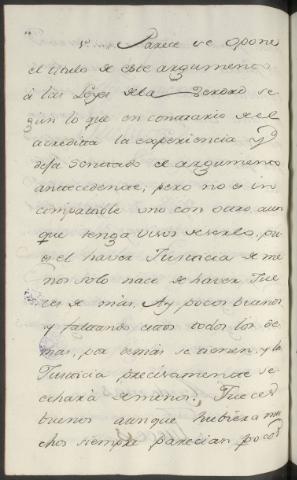 1º. Parece se opone
el titulo de este argumento
á las Leyes de la Verdad se
gun lo que en contrario de el
acredita la experiencia y
desa sentado el argumento
antecedente; pero no es in
compatible uno con otro, aun
que tenga visos de serlo, pues
el haver Justicia de me
nos solo nace de haver Jue
ces de mas. Ay pocos buenos
y faltando estos todos los de
mas, por demas se tienen, y la
Justicia precisamente se
echará á menos. Jueces
buenos aunque hubiera mu
chos siempre parecian pocos